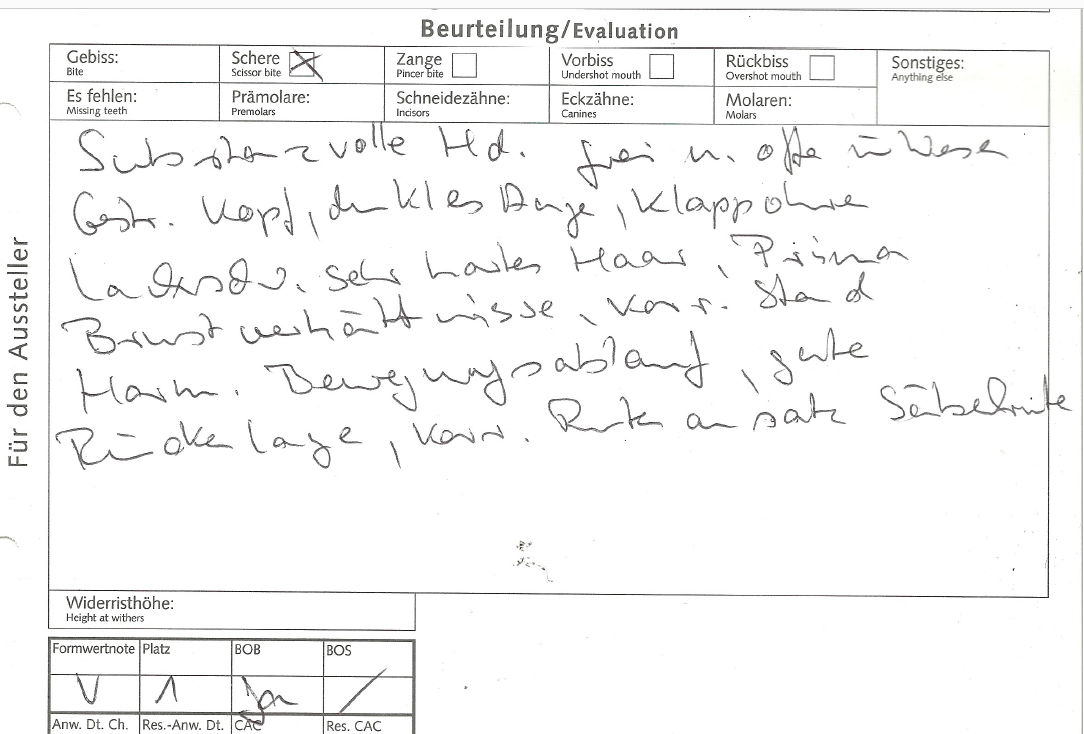 Beurteilung/Evaluation
Gebiss: Schere Zange Vorbiss Rückbiss Sonstiges:
Bite Scissor bite Pincer bite Undershot mouth Overshot mouth Anything else
Es fehlen: Prämolare: Schneidezähne: Eckzähne: Molaren:
Missing teeth Premolars Incisors Canines Molars
Substanzvolle Hd. frei u. offen im Wesen
Gestr. Kopf, dunkles Auge, Klappohren
sehr hartes Haar, Prima
Brustverhältnisse, korr. Stand
Harm. Bewegungsablauf, gute
Rückenlage, korr. Rutenansatz Säbelrute
Für den Aussteller
Widerristhöhe:
Height at withers
Formwertnote Platz BOB BOS
V 1 Ja /
Anw. Dt. Ch. Res.-Anw. Dt. CAC Res. CAC